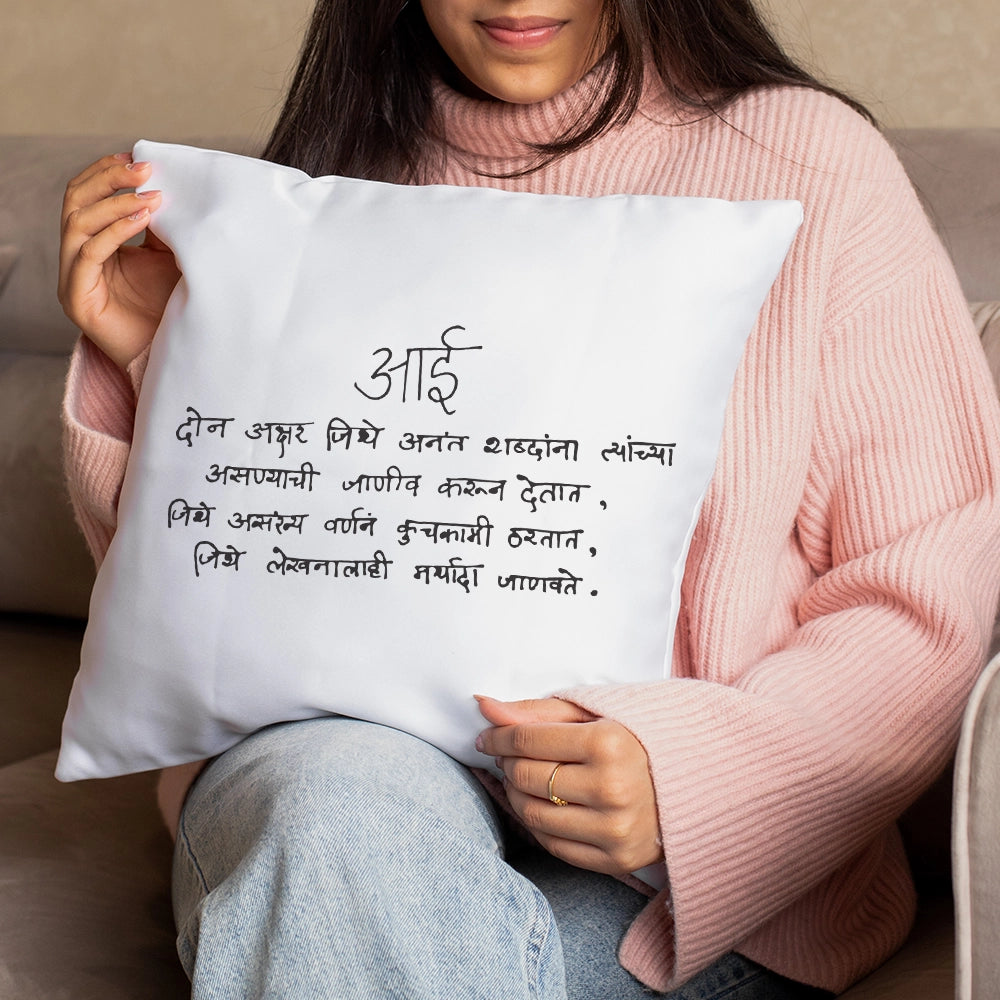 आई
दोन अक्षर जिथे अनंत शब्दांना त्यांच्या
असण्याची जाणीव करून देतात,
जिथे असंख्य वर्णनं कुचकामी ठरतात,
जिथे लेखनालाही मर्यादा जाणवते.